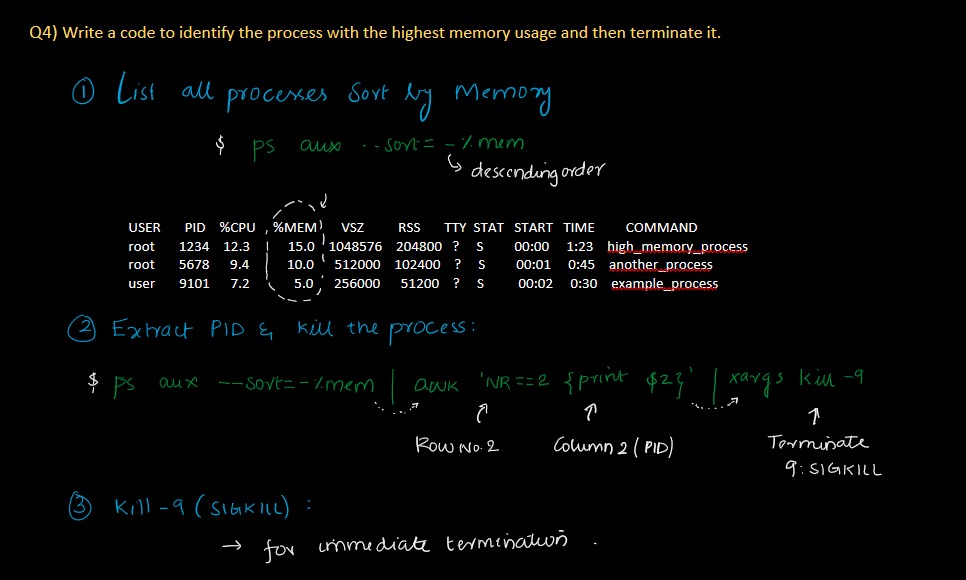 Q4) Write a code to identify the process with the highest memory usage and then terminate it.
① List all processes Sort by Memory
$ ps aux --sort=-%mem
descending order
USER PID %CPU %MEM VSZ RSS TTY STAT START TIME COMMAND
root 1234 12.3 15.0 1048576 204800 ? S 00:00 1:23 high_memory_process
root 5678 9.4 10.0 512000 102400 ? S 00:01 0:45 another_process
user 9101 7.2 5.0 256000 51200 ? S 00:02 0:30 example_process
② Extract PID & kill the process:
$ ps aux --sort=-%mem | awk 'NR==2 {print $2}' | xargs kill -9
Row No. 2 Column 2 (PID) Terminate
9: SIGKILL
③ Kill -9 (SIGKILL) :
→ for immediate termination .